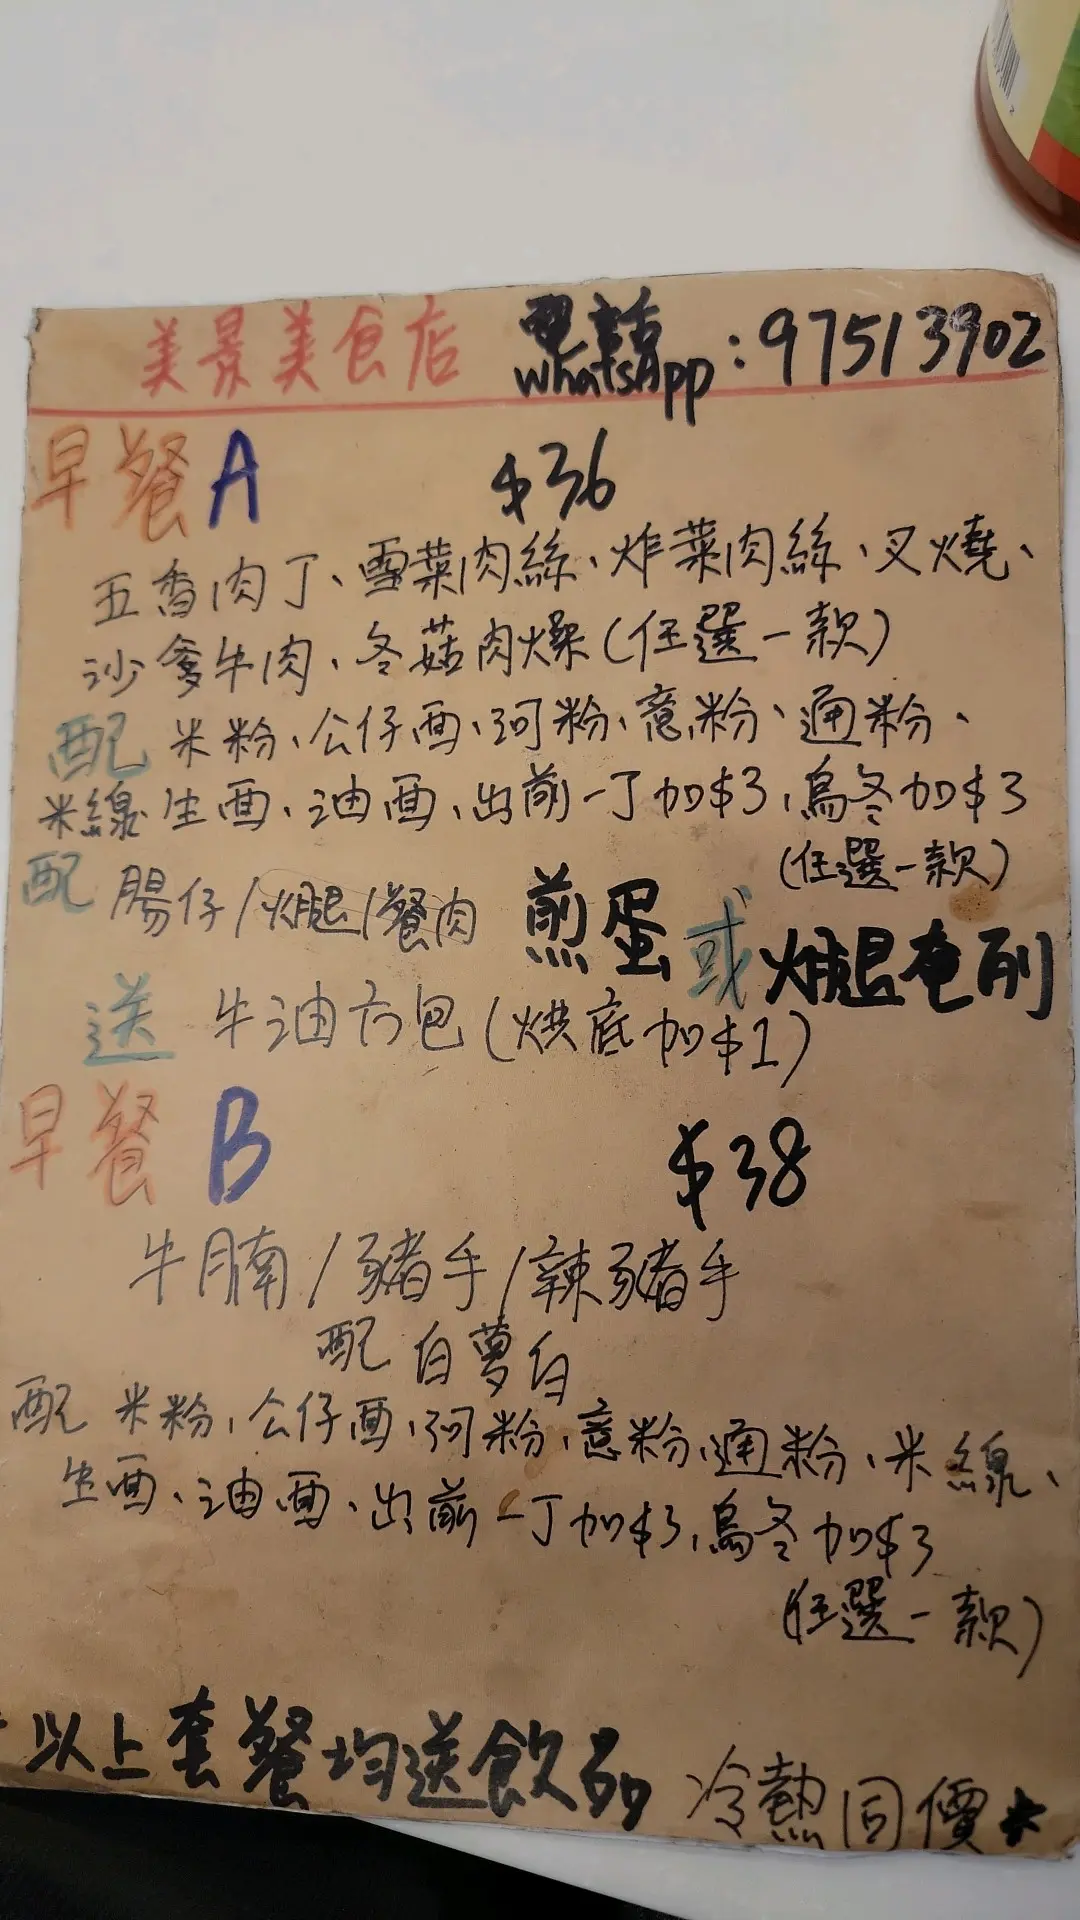 美景美食店 電話 WhatsApp : 97513902
早餐 A $36
五香肉丁、雪菜肉絲、炸菜肉絲、叉燒、
沙爹牛肉、冬菇肉燥(任選一款)
配 米粉、公仔面、河粉、意粉、通粉、
米線 生面、油面、出前一丁加$3、烏冬加$3
(任選一款)
配 腸仔/火腿/餐肉 煎蛋 或 火腿奄列
送 牛油方包(烘底加$1)
早餐 B $38
牛腩/豬手/辣豬手
配 白蘿白
配 米粉、公仔面、河粉、意粉、通粉、米線、
生面、油面、出前一丁加$3、烏冬加$3
(任選一款)
以上套餐均送飲品 冷熱同價*